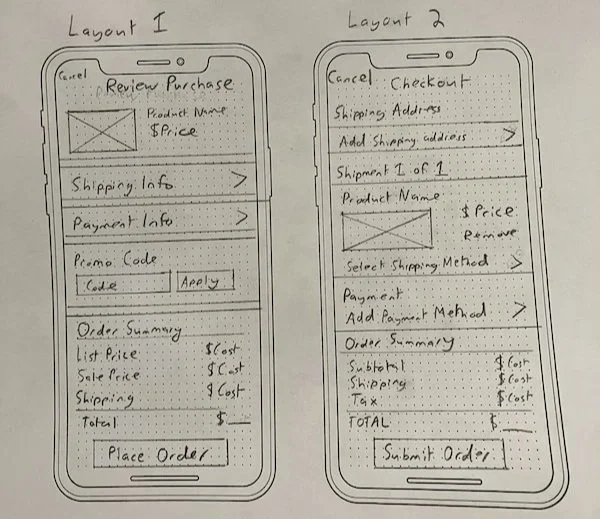 Layout 1
Cancel
Review Purchase
Product Name
$Price
Shipping Info >
Payment Info >
Promo Code
Code Apply
Order Summary
List Price $Cost
Sale Price $Cost
Shipping $Cost
Total $__
Place Order
Layout 2
Cancel Checkout
Shipping Address
Add Shipping address >
Shipment 1 of 1
Product Name
$Price
Remove
Select Shipping Method >
Payment
Add Payment Method >
Order Summary
Subtotal $Cost
Shipping $Cost
Tax $Cost
TOTAL $__
Submit Order